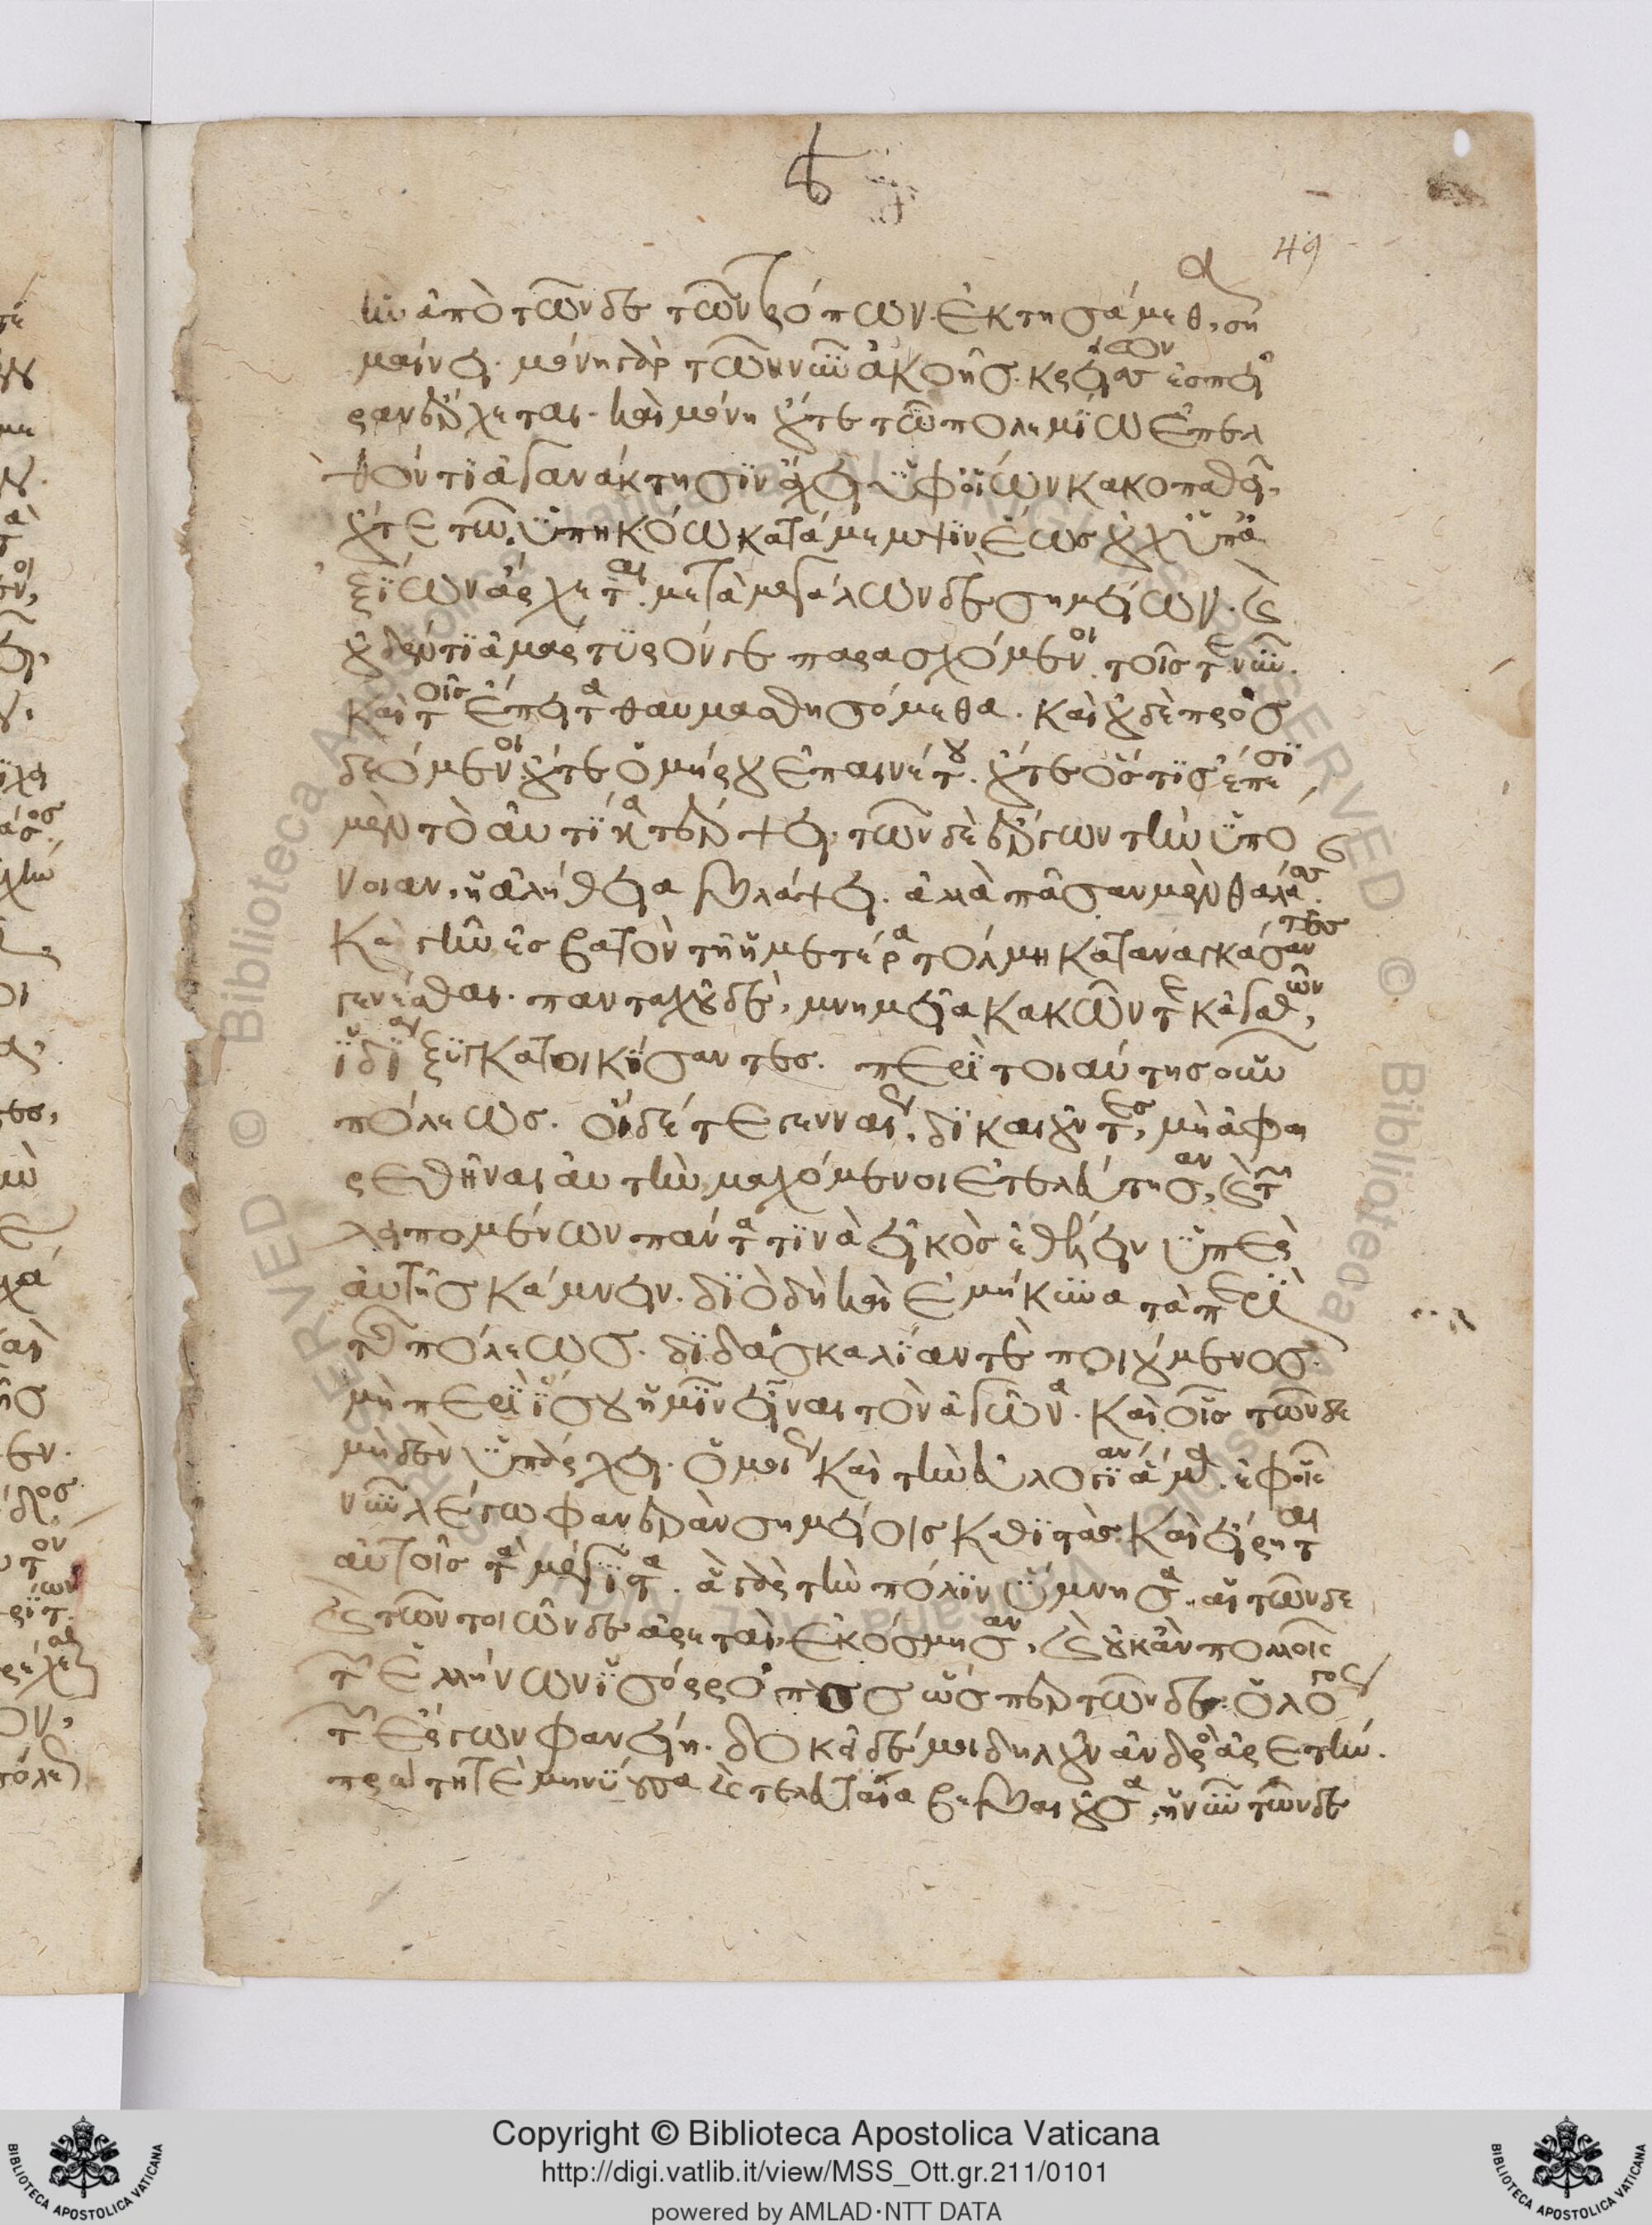 ἣν ἀπὸ τῶνδε τῶν τρόπων ἐκτησάμεθα, ση
μαίνει. μόνη γὰρ τῶν νῦν ἀκοῆς κρείσσων ἐς πεῖ
ραν ἔρχεται. καὶ μόνη οὔτε τῶ πολεμίω ἐπελ
θόντι ἀγανάκτησιν ἔχει ὑφ' οἵων κακοπαθεῖ,
οὔτε τῶ ὑπηκόω κατάμεμψιν ἕως οὐχ ὑπ' ἀ
ξίων ἄρχεται. μετὰ μεγάλων δὲ σημείων. καὶ
οὐ δέν τι ἀμάρτυρόν γε παρασχόμενοι τοῖς τε νῦν.
καὶ τοῖς ἔπειτα θαυμασθησόμεθα. καὶ οὐδὲ προσ
δεόμενοι οὔτε ὁμήρου ἐπαινέτου. οὔτε ὅστις ἔπεσι
μὲν τὸ αὐτίκα τέρψει, τῶν δὲ ἔργων τὴν ὑπό
νοιαν, ἡ ἀλήθεια βλάψει. ἀλλὰ πᾶσαν μὲν θάλας.
καὶ γῆν ἐσβατὸν τῆ ἡμετέρα τόλμη καταναγκάσαντες
γενέσθαι. πανταχοῦ δὲ, μνημεῖα κακῶν τε κἀγαθῶν,
ἴδια ξυγκατοικίσαντες. περὶ τοιαύτης οὖν
πόλεως. οἵδέ τε γενναίως, δικαιοῦντες, μὴ ἀφαι
ρεθῆναι αὐτὴν μαχόμενοι ἐτελεύτησαν, καὶ τῶν
λειπομένων πάντα τινὰ εἰκὸς ἐθέλειν ὑπὲρ
αὐτῆς κάμνειν. διὸ δὴ καὶ ἐμήκυνα τὰ περὶ
τῆς πόλεως. διδασκαλίαν τὲ ποιούμενος.
μὴ περὶ ἴσου ἡμῖν εἶναι τὸν ἀγῶνα. καὶ οἷς τῶνδε
μηδὲν ὑπάρχει. ὁμοίως καὶ τὴν εὐλογίαν ἅμα. ἐφ' οἷς
νῦν λέγω φανερὰν σημείοις καθιστὰς. καὶ εἴρηται
αὐτῆς τὰ μέγιστα. ἃ γὰρ τὴν πόλιν ὕμνησα, αἱ τῶνδε
καὶ τῶν τοιῶνδε ἀρεταὶ, ἐκόσμησαν, καὶ οὐκ ἂν πολλοῖς
τῶν ἑλλήνων ἰσόρροπος ὥσπερ τῶνδε. ὁ λόγος
τῶν ἔργων φανείη. δοκεῖ δέ μοι δηλοῦν ἀνδρὸς ἀρετὴν.
πρώτη τὲ μηνύουσα καὶ τελευταία βεβαιοῦσα, ἡ νῦν τῶνδε